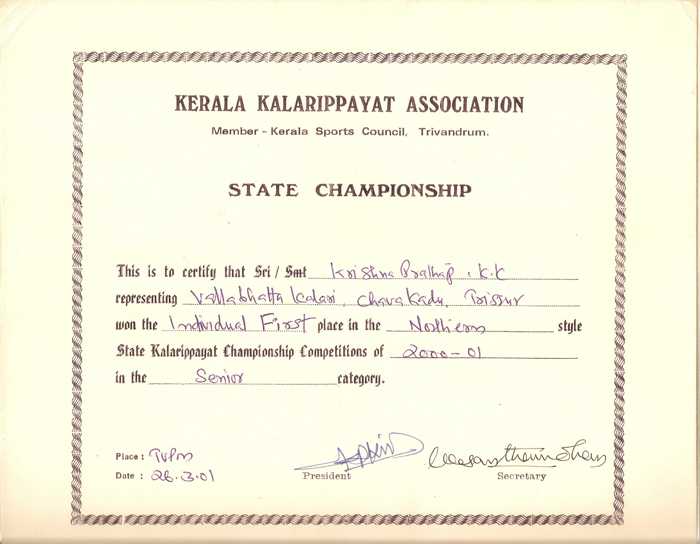 KERALA KALARIPPAYAT ASSOCIATION
Member - Kerala Sports Council, Trivandrum.
STATE CHAMPIONSHIP
This is to certify that Sri / Smt Krishna Prathap . K.K
representing Vallabhatta Kalari, Chavakadu, Trissur
won the Individual First place in the Northern style
State Kalarippayat Championship Competitions of 2000-01
in the Senior category.
Place : Tvpm
Date : 26.3.01
President
Secretary